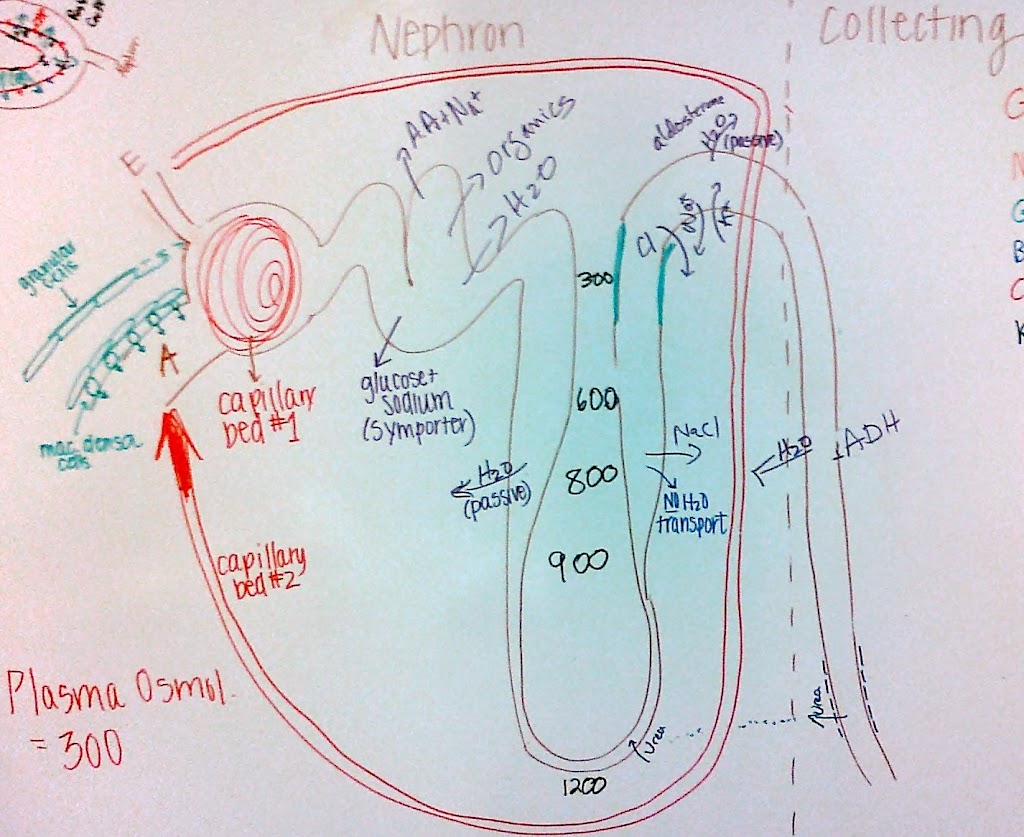 Nephron
Collecting
E
granular
cells
A
mac. densa
cells
AA+Na+
Organics
H2O
aldosterone
H2O
(passive)
Cl
capillary
bed #1
glucose+
sodium
(symporter)
300
600
800
900
1200
H2O
(passive)
NaCl
NO H2O
transport
H2O
ADH
capillary
bed #2
Plasma Osmol.
= 300
Urea
Urea
G
N
G
B
C
K